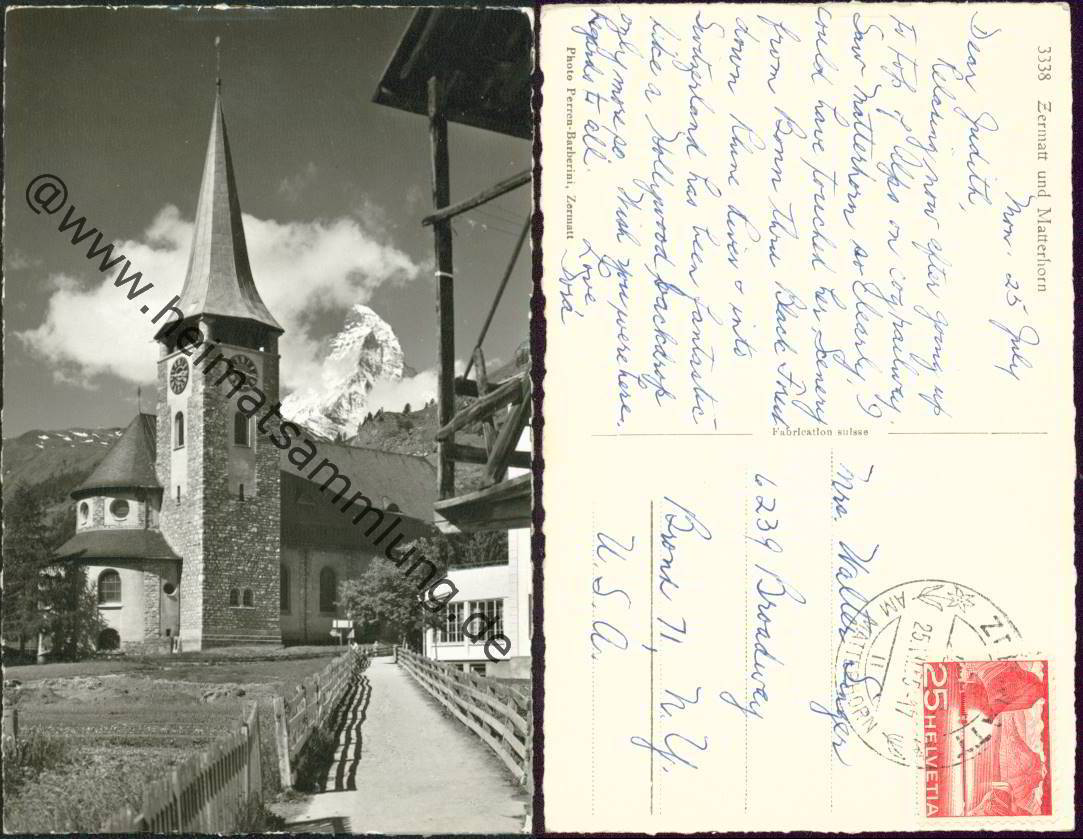 @www.heimatsammlung.de
3338 Zermatt und Matterhorn
Mon. 25 July
Dear Judith,
Relaxing now after going up
to top of Alps on cog railway.
Saw Matterhorn so clearly, I
could have touched her. Scenery
from Bonn thru Black Forest
down Rhine River & into
Switzerland has been fantastic
like a Hollywood backdrop
only more so. Wish you were here.
Regards to all. Love,
Photo Perren-Barberini, Zermatt
Fabrication suisse
Mrs. Walter Singer
6239 Broadway
Bronx 71, N.Y.
U.S.A.
ZE
25.VII
AM MATTERHORN
25 HELVETIA